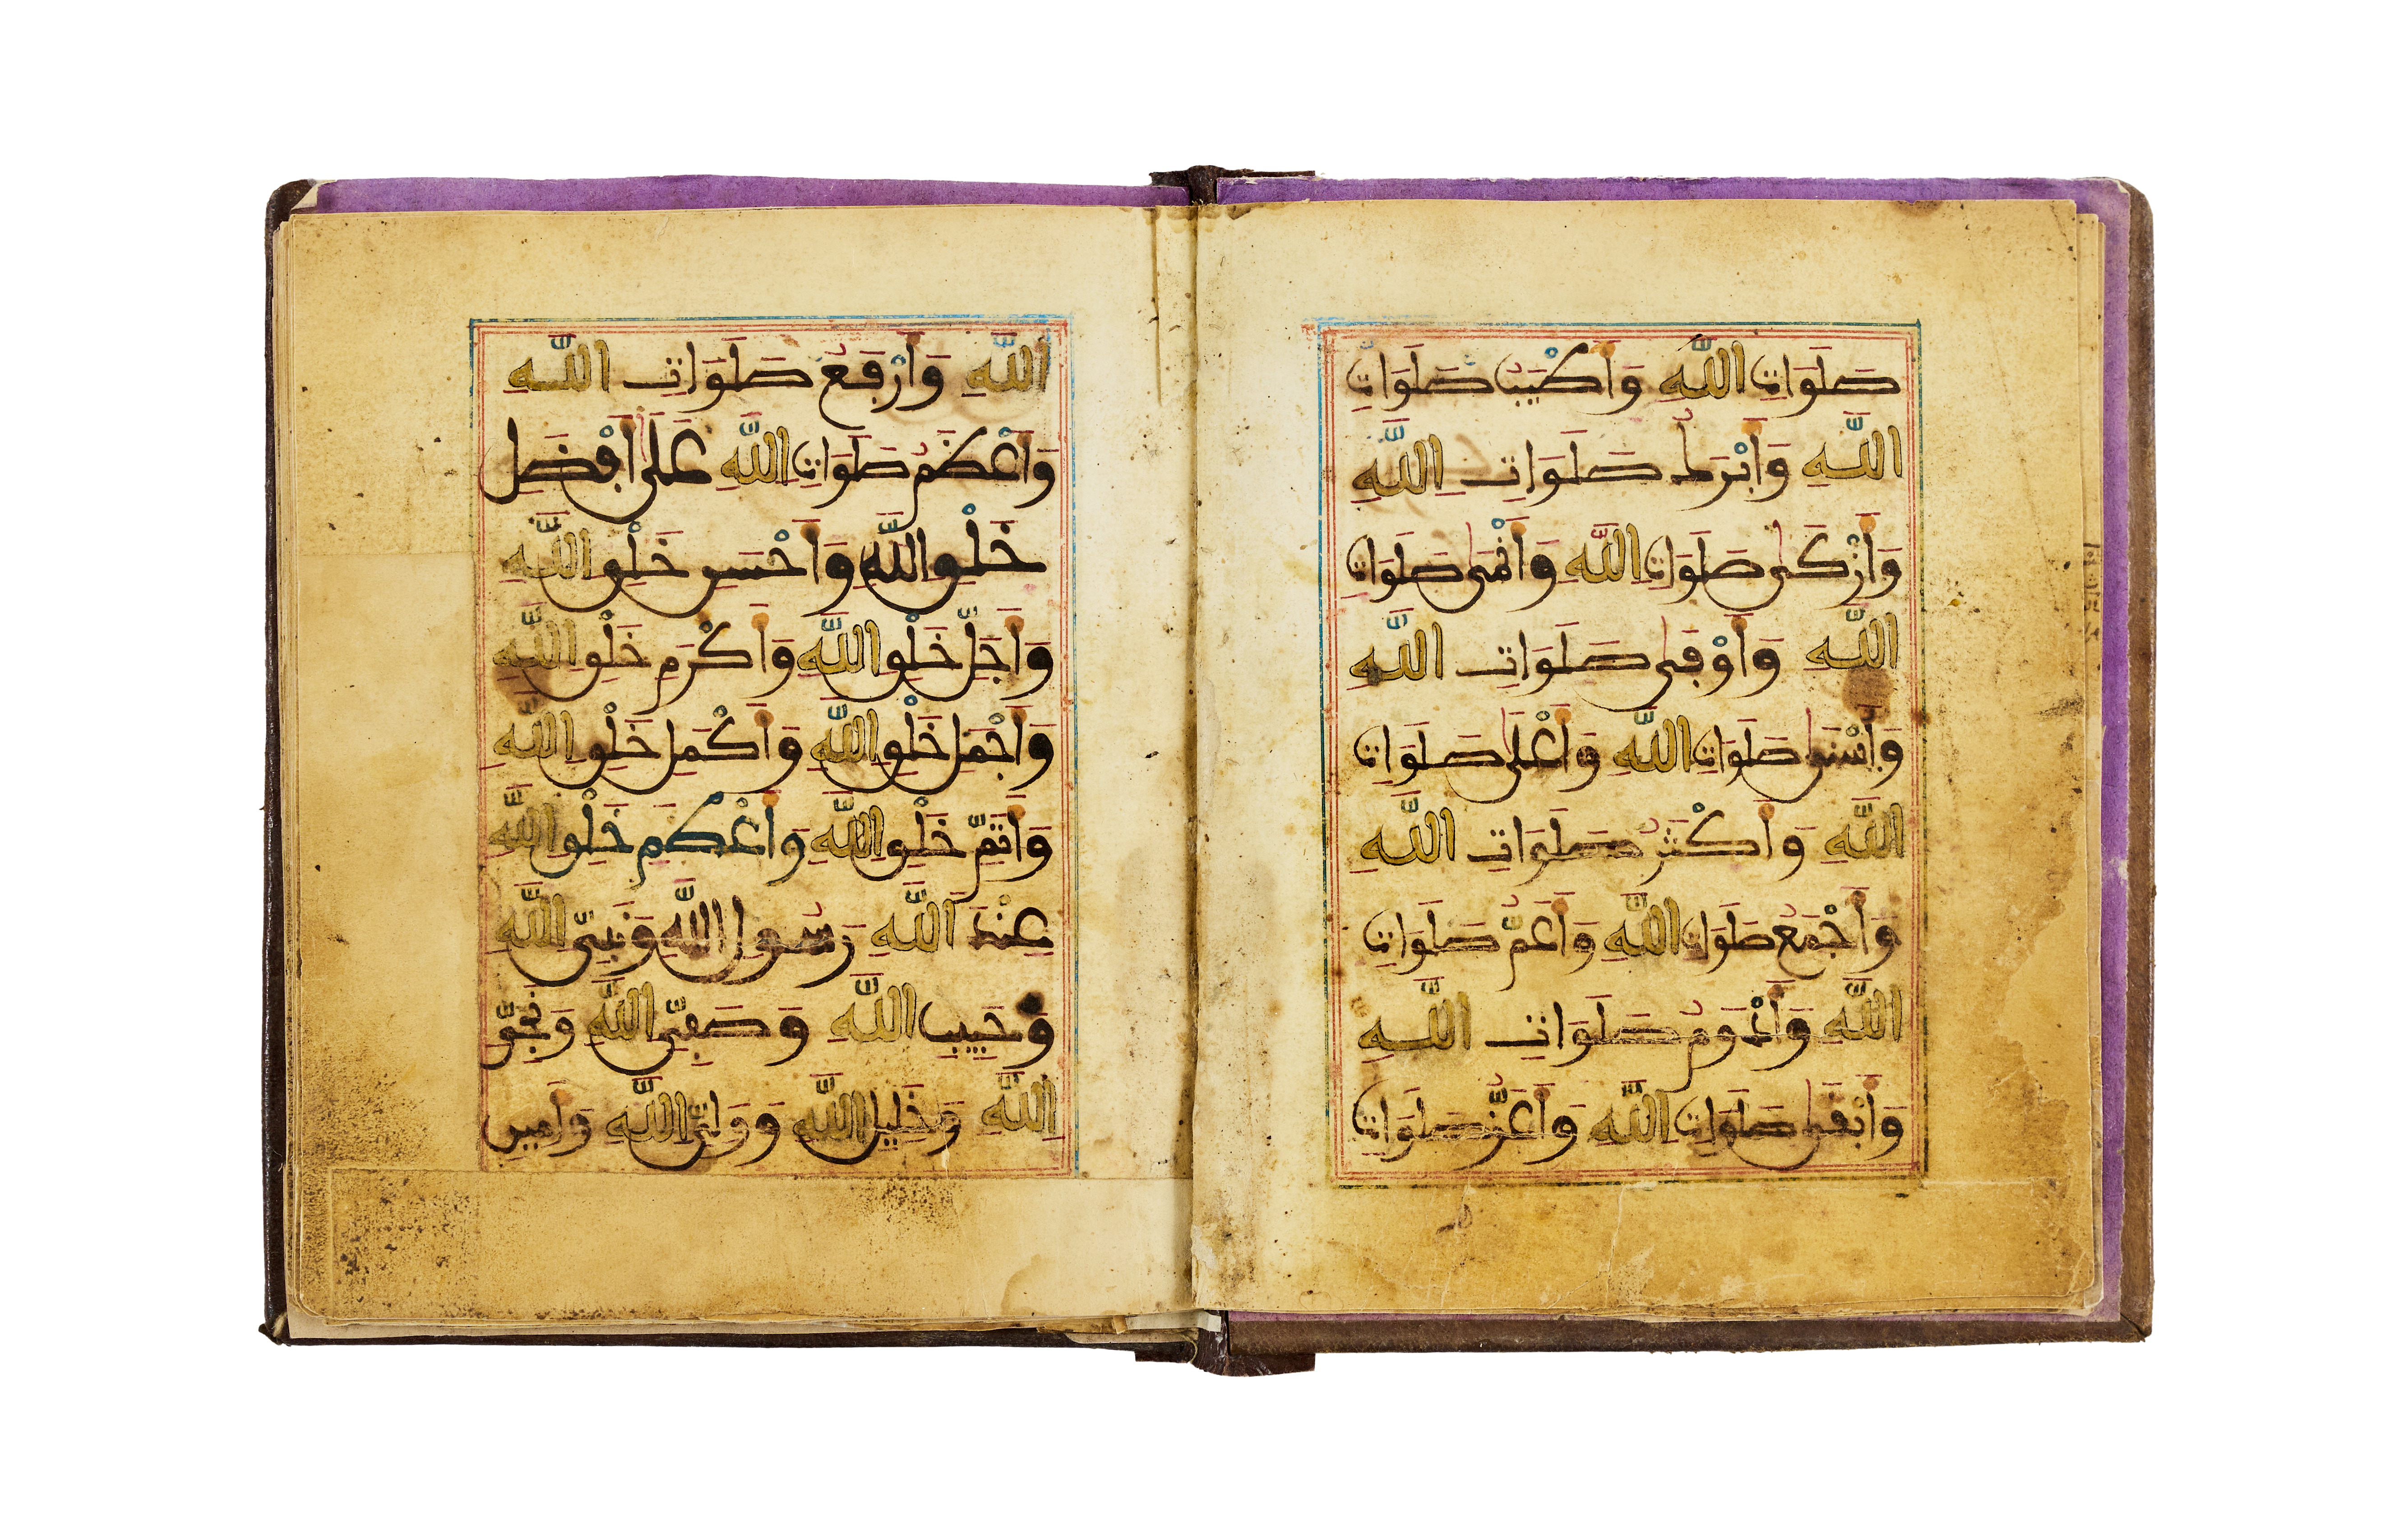 صَلَوَاتِ اللَّهِ وَأَطْيَبُ صَلَوَاتِ
اللَّهِ وَأَبْرَكُ صَلَوَاتِ اللَّهِ
وَأَزْكَى صَلَوَاتِ اللَّهِ وَأَنْمَى صَلَوَاتِ
اللَّهِ وَأَوْفَى صَلَوَاتِ اللَّهِ
وَأَسْنَى صَلَوَاتِ اللَّهِ وَأَعْلَى صَلَوَاتِ
اللَّهِ وَأَكْثَرُ صَلَوَاتِ اللَّهِ
وَأَجْمَعُ صَلَوَاتِ اللَّهِ وَأَعَمُّ صَلَوَاتِ
اللَّهِ وَأَدْوَمُ صَلَوَاتِ اللَّهِ
وَأَبْقَى صَلَوَاتِ اللَّهِ وَأَعَزُّ صَلَوَاتِ
اللَّهِ وَأَرْفَعُ صَلَوَاتِ اللَّهِ
وَأَعْظَمُ صَلَوَاتِ اللَّهِ عَلَى أَفْضَلِ
خَلْقِ اللَّهِ وَأَحْسَنِ خَلْقِ اللَّهِ
وَأَجَلِّ خَلْقِ اللَّهِ وَأَكْرَمِ خَلْقِ اللَّهِ
وَأَجْمَلِ خَلْقِ اللَّهِ وَأَكْمَلِ خَلْقِ اللَّهِ
وَأَتَمِّ خَلْقِ اللَّهِ وَأَعْظَمِ خَلْقِ اللَّهِ
عِنْدَ اللَّهِ رَسُولِ اللَّهِ وَنَبِيِّ اللَّهِ
وَحَبِيبِ اللَّهِ وَصَفِيِّ اللَّهِ وَنَجِيِّ
اللَّهِ وَخَلِيلِ اللَّهِ وَوَلِيِّ اللَّهِ وَأَمِينِ